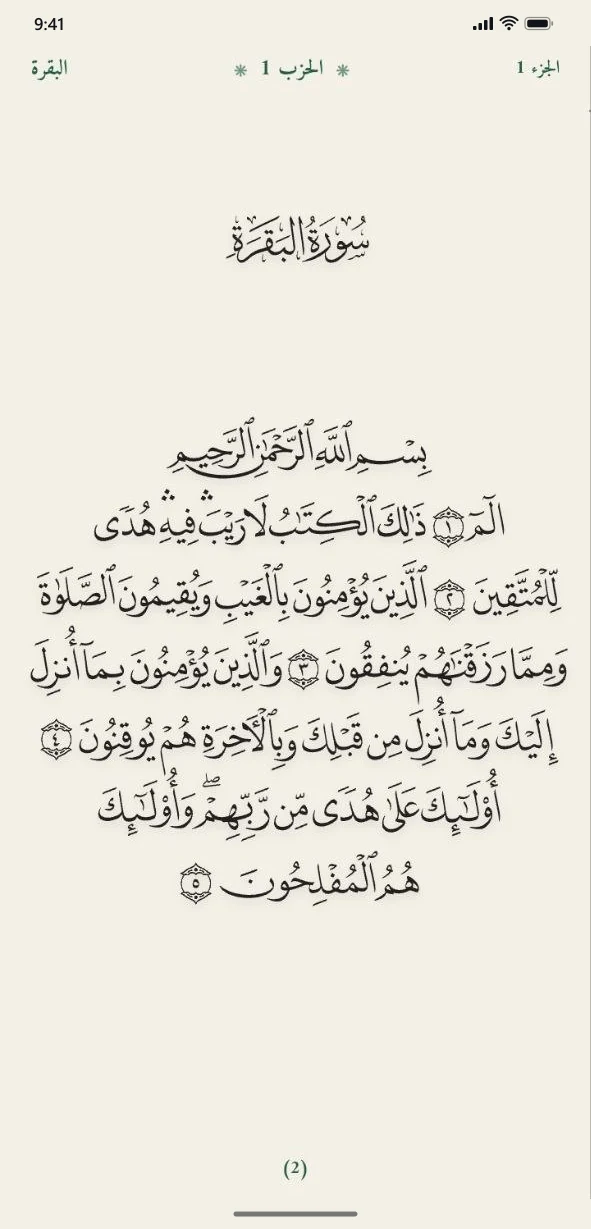 9:41
الجزء 1 ❋ الحزب 1 ❋ البقرة
سُورَةُ البَقَرَةِ
بِسْمِ ٱللَّهِ ٱلرَّحْمَٰنِ ٱلرَّحِيمِ
الٓمٓ ١ ذَٰلِكَ ٱلْكِتَٰبُ لَا رَيْبَۛ فِيهِۛ هُدًى
لِّلْمُتَّقِينَ ٢ ٱلَّذِينَ يُؤْمِنُونَ بِٱلْغَيْبِ وَيُقِيمُونَ ٱلصَّلَوٰةَ
وَمِمَّا رَزَقْنَٰهُمْ يُنفِقُونَ ٣ وَٱلَّذِينَ يُؤْمِنُونَ بِمَآ أُنزِلَ
إِلَيْكَ وَمَآ أُنزِلَ مِن قَبْلِكَ وَبِٱلْءَاخِرَةِ هُمْ يُوقِنُونَ ٤
أُو۟لَٰٓئِكَ عَلَىٰ هُدًى مِّن رَّبِّهِمْۖ وَأُو۟لَٰٓئِكَ
هُمُ ٱلْمُفْلِحُونَ ٥
(2)